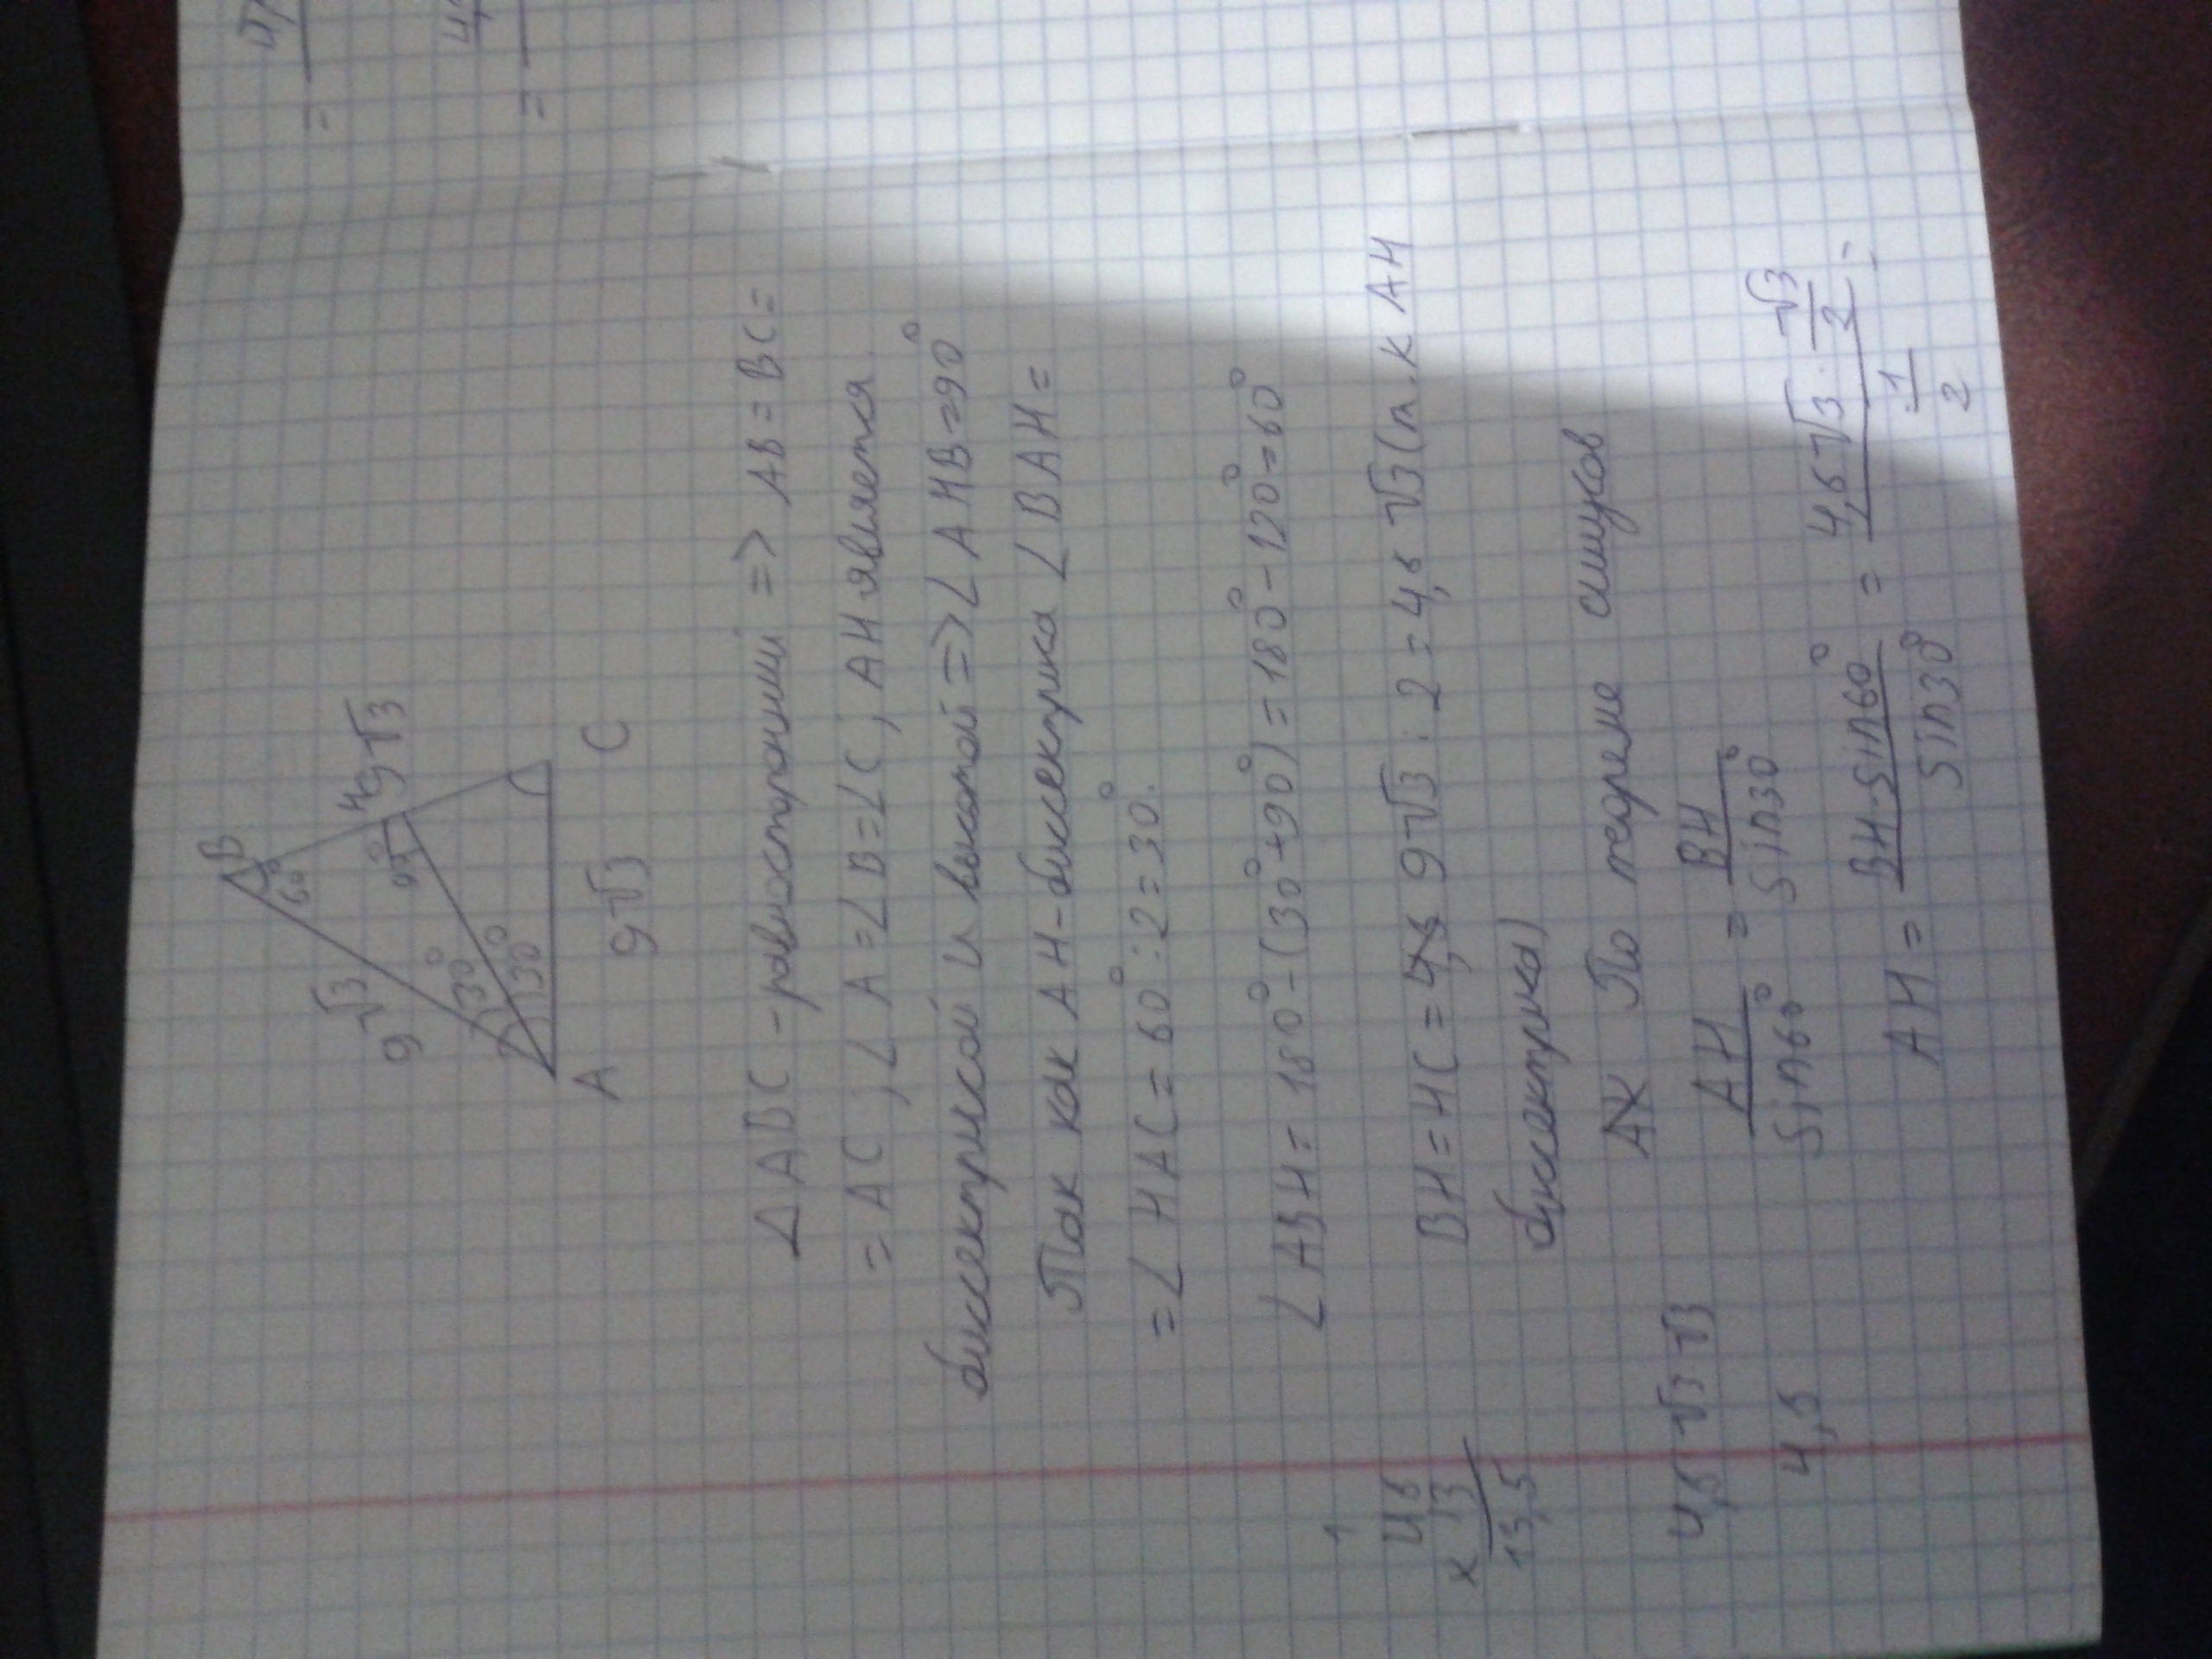 B
60°
9√3
H
9√3
90°
30°
30°
A
C
9√3
△ABC - равносторонний => AB = BC =
= AC, ∠A = ∠B = ∠C, AH является
биссектрисой и высотой => ∠AHB = 90°
Так как AH - биссектриса ∠BAH =
= ∠HAC = 60° : 2 = 30°.
∠ABH = 180° - (30° + 90°) = 180° - 120° = 60°
BH = HC = 9√3 : 2 = 4,5 √3 (т.к AH
биссектриса)
По теореме синусов
AH/Sin60° = BH/Sin30°
AH = BH · Sin60°/Sin30° = 4,5√3 · √3/2 / 1/2 =
1
45
x 3
13,5
4,5 √3 √3
4,5
=
=